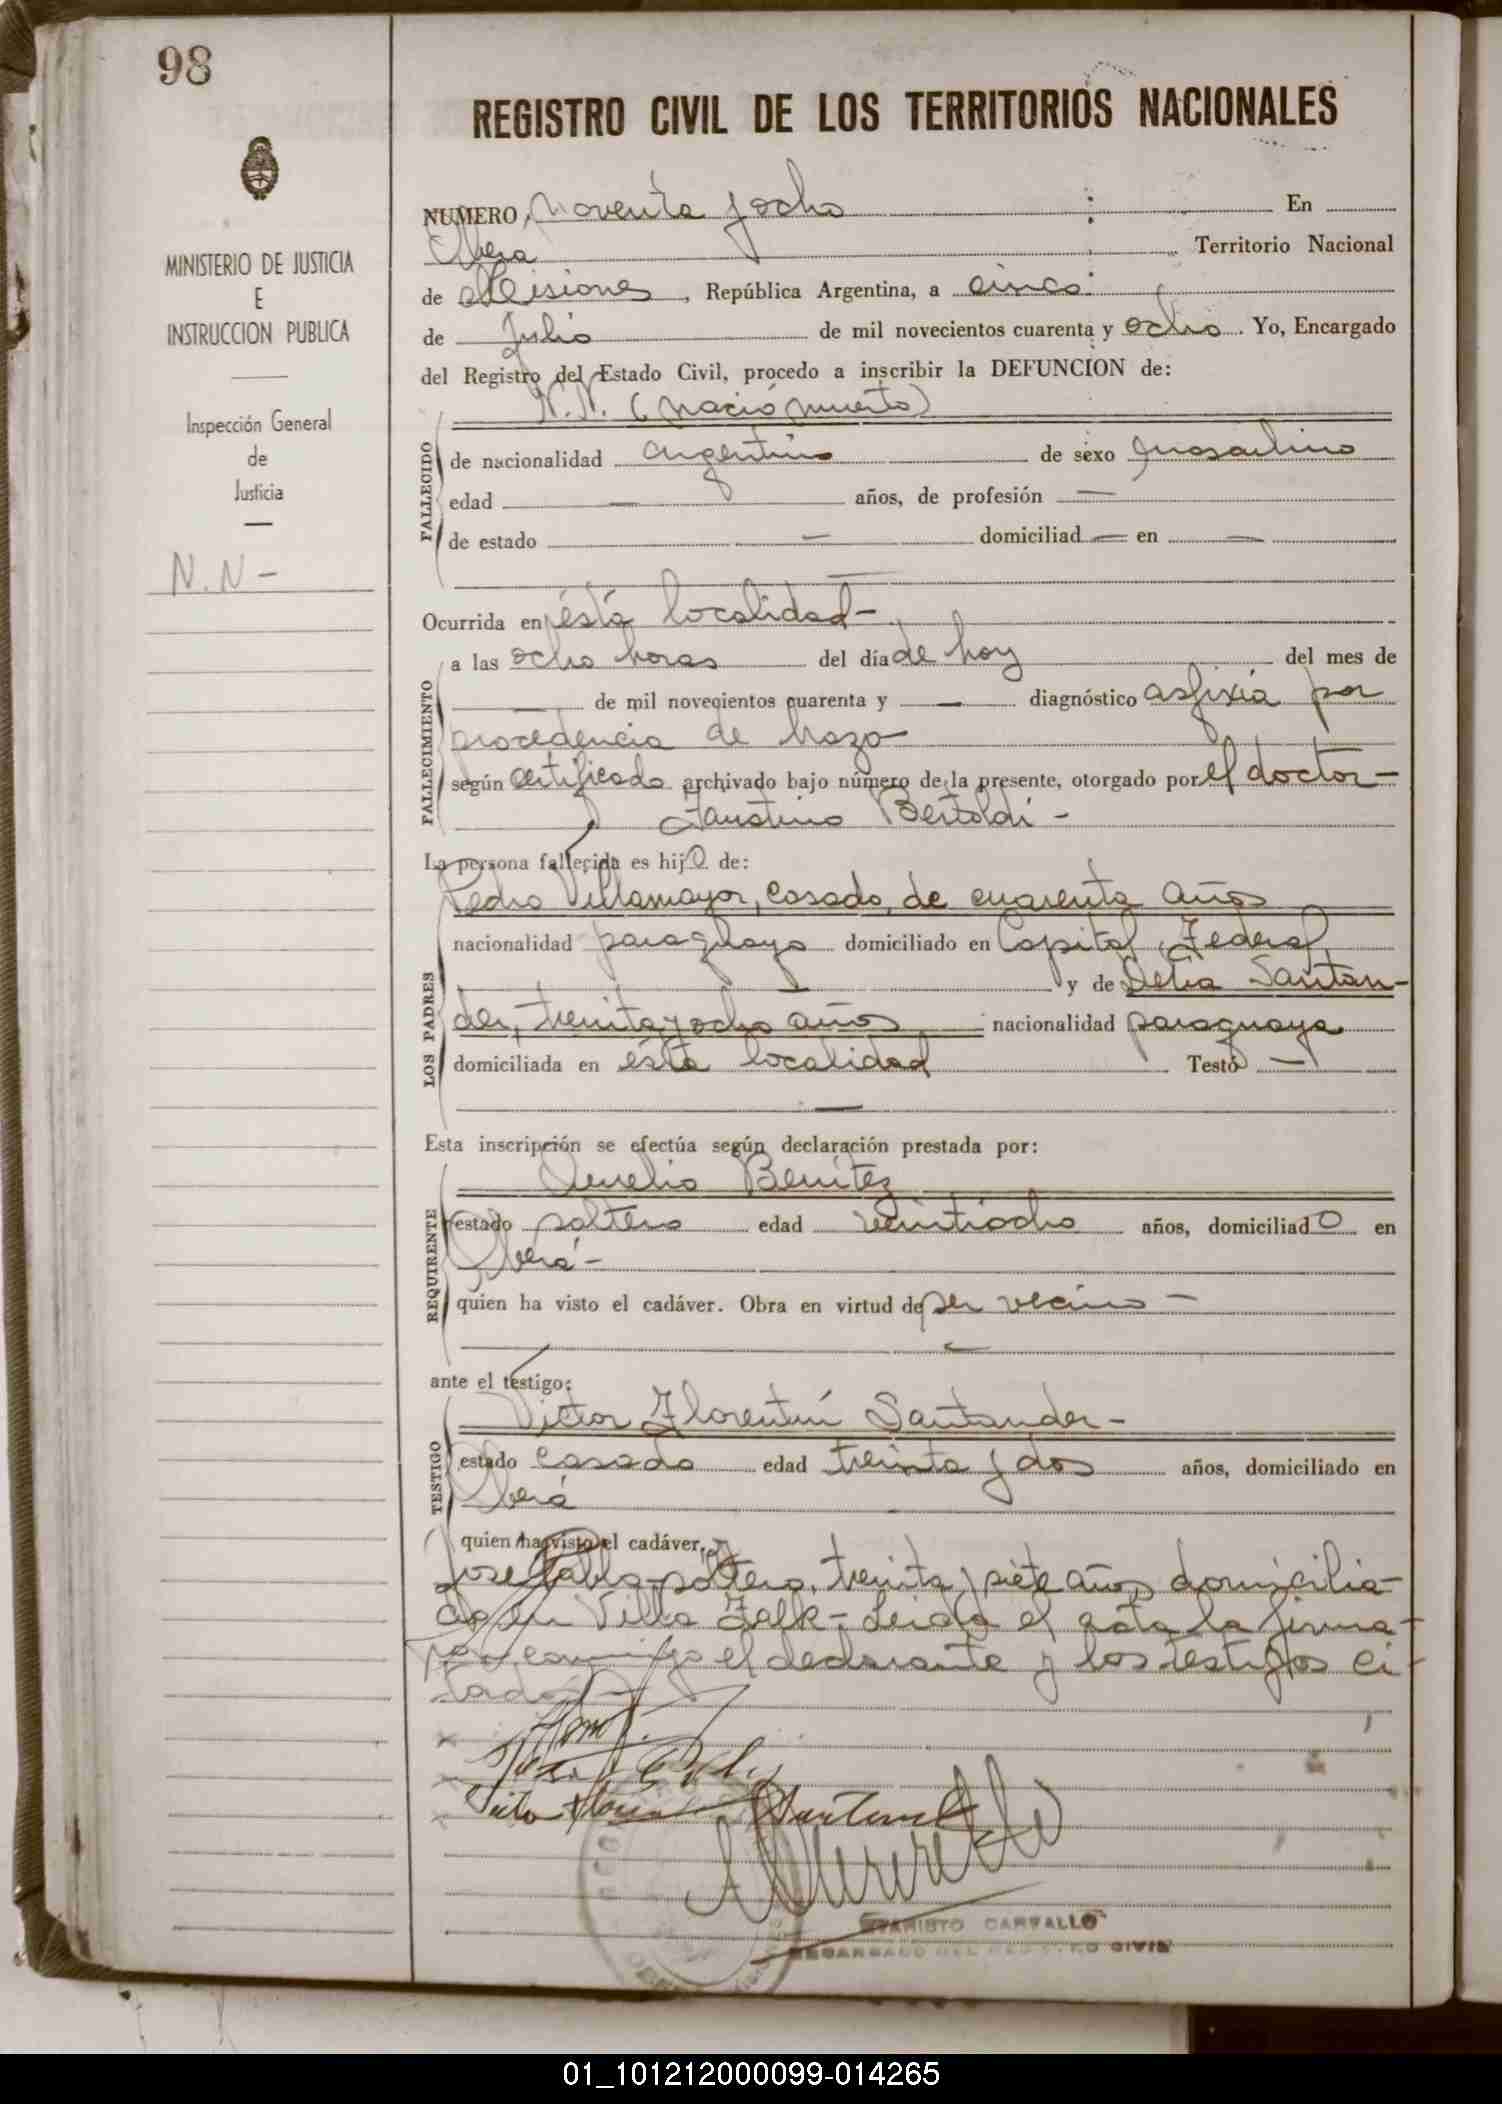 98
MINISTERIO DE JUSTICIA
E
INSTRUCCION PUBLICA
Inspección General
de
Justicia
N.N -
REGISTRO CIVIL DE LOS TERRITORIOS NACIONALES
NUMERO, noventa y ocho En
Oberá Territorio Nacional
de Misiones, República Argentina, a cinco
de Julio de mil novecientos cuarenta y ocho. Yo, Encargado
del Registro del Estado Civil, procedo a inscribir la DEFUNCION de:
N.N. (nació muerto)
FALLECIDO
de nacionalidad argentino de sexo masculino
edad — años, de profesión —
de estado — domiciliad — en —
Ocurrida en ésta localidad -
FALLECIMIENTO
a las ocho horas del día de hoy del mes de
— de mil novecientos cuarenta y — diagnóstico asfixia por
procedencia de brazo
según certificado archivado bajo número de la presente, otorgado por el doctor -
Faustino Bertoldi -
La persona fallecida es hijo de:
LOS PADRES
Pedro Villamayor, casado, de cuarenta años
nacionalidad paraguayo domiciliado en Capital Federal
y de Delia Santan-
der, treinta y ocho años nacionalidad paraguaya
domiciliada en ésta localidad Testó —
Esta inscripción se efectúa según declaración prestada por:
REQUIRENTE
Aurelio Benítez
estado soltero edad veintiocho años, domiciliado en
Oberá -
quien ha visto el cadáver. Obra en virtud de ser vecino -
ante el testigo:
TESTIGO
Victor Florentín Santander -
estado casado edad treinta y dos años, domiciliado en
Oberá
quien ha visto el cadáver, y
José Pablo, soltero, treinta y siete años, domicilia-
do en Villa Falk - Leida el acta la firma-
ron conmigo el declarante y los testigos ci-
tados -
EVARISTO CARVALLO
ENCARGADO DEL REGISTRO CIVIL
01_101212000099-014265